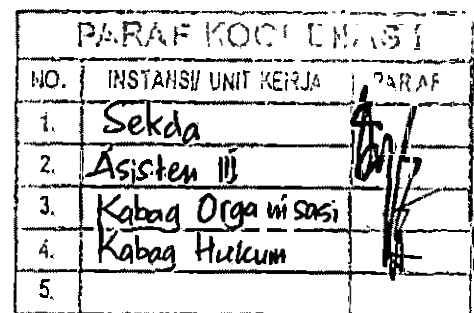 PARAF KOORDINASI
NO. INSTANSI/ UNIT KERJA PARAF
1. Sekda
2. Asisten III
3. Kabag Organisasi
4. Kabag Hukum
5.